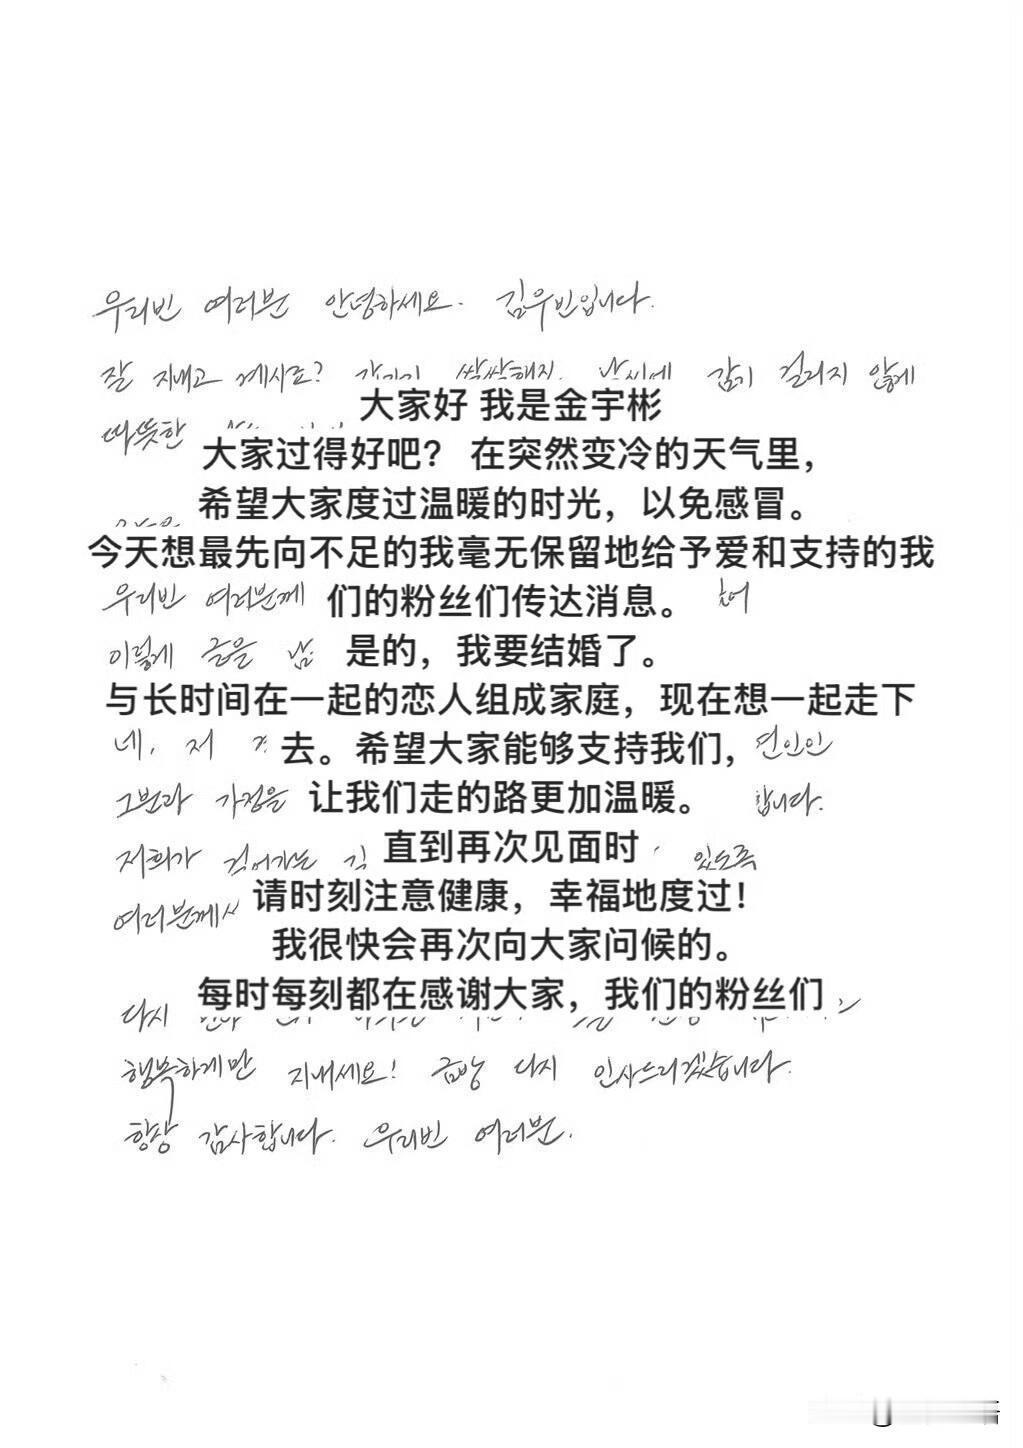 우리빈 여러분 안녕하세요. 김우빈입니다.
잘 지내고 계시죠? 갑자기 쌀쌀해진 날씨에 감기 걸리지 않게
大家好 我是金宇彬
따뜻한
大家过得好吧？ 在突然变冷的天气里，
希望大家度过温暖的时光，以免感冒。
今天想最先向不足的我毫无保留地给予爱和支持的我
우리빈 여러분께
们的粉丝们传达消息。
이렇게 글을 남
是的，我要结婚了。
与长时间在一起的恋人组成家庭，现在想一起走下
네, 저
去。希望大家能够支持我们，
연인인
그분과 가정을
让我们走的路更加温暖。
합니다.
저희가 걸어가는
直到再次见面时
있도록
여러분께서
请时刻注意健康，幸福地度过！
我很快会再次向大家问候的。
每时每刻都在感谢大家，我们的粉丝们
다시
행복하게만 지내세요! 금방 다시 인사드리겠습니다.
항상 감사합니다. 우리빈 여러분.